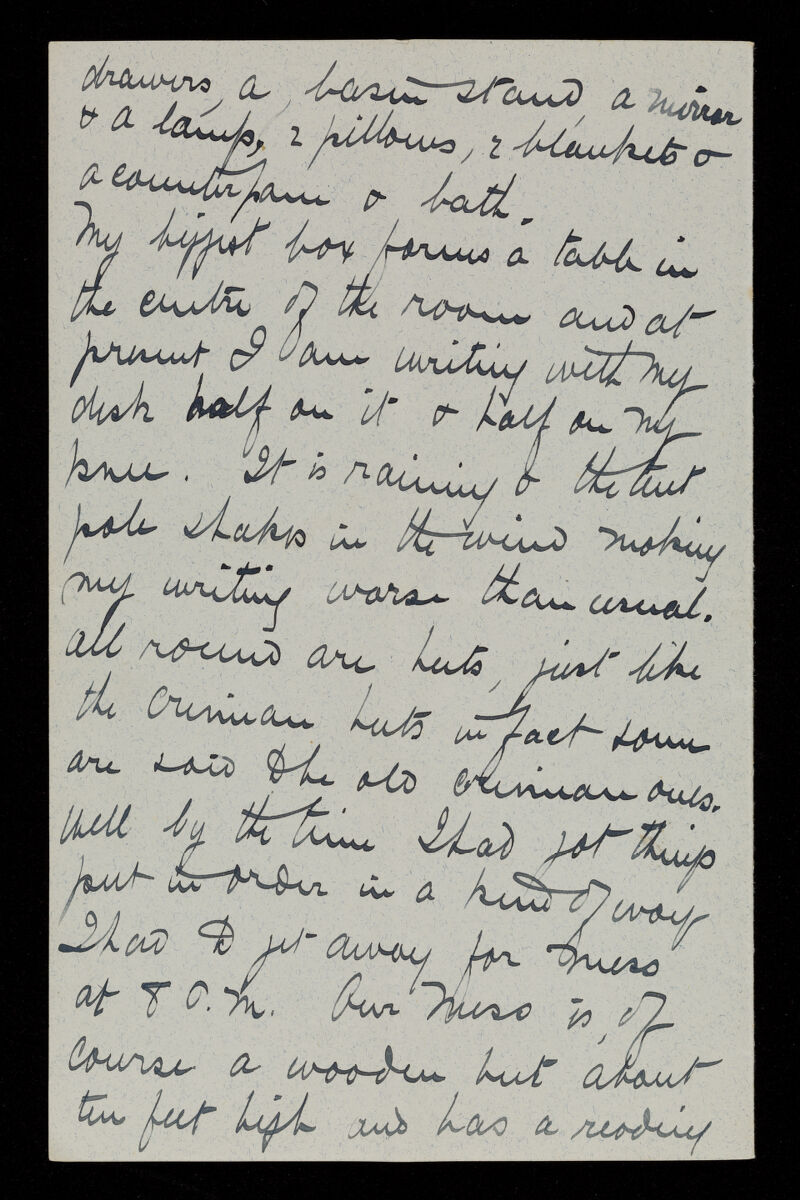 drawers, a, basin stand, a mirror
& a lamp, 2 pillows, 2 blankets &
a counterpane & bath.
My biggest box forms a table in
the centre of the room and at
present I am writing with my
desk half on it & half on my
knee. It is raining & the tent
pole shakes in the wind making
my writing worse than usual.
All round are huts, just like
the Crimean huts in fact some
are said to be old Crimean ones.
Well by the time I had got things
put in order in a kind of way
I had to get away for mess
at 8 P.M. Our Mess is, of
course a wooden hut about
ten feet high and has a reading